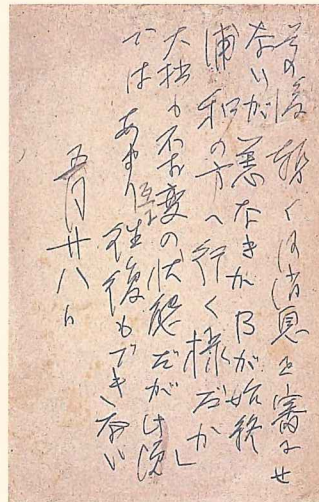 その後暫くは消息を審にせ
ないが恙なきかBが始終
浦和の方へ行く様だが
大抵も不相変の状態だが此頃
ではあまり往復もできない
五月廿八日